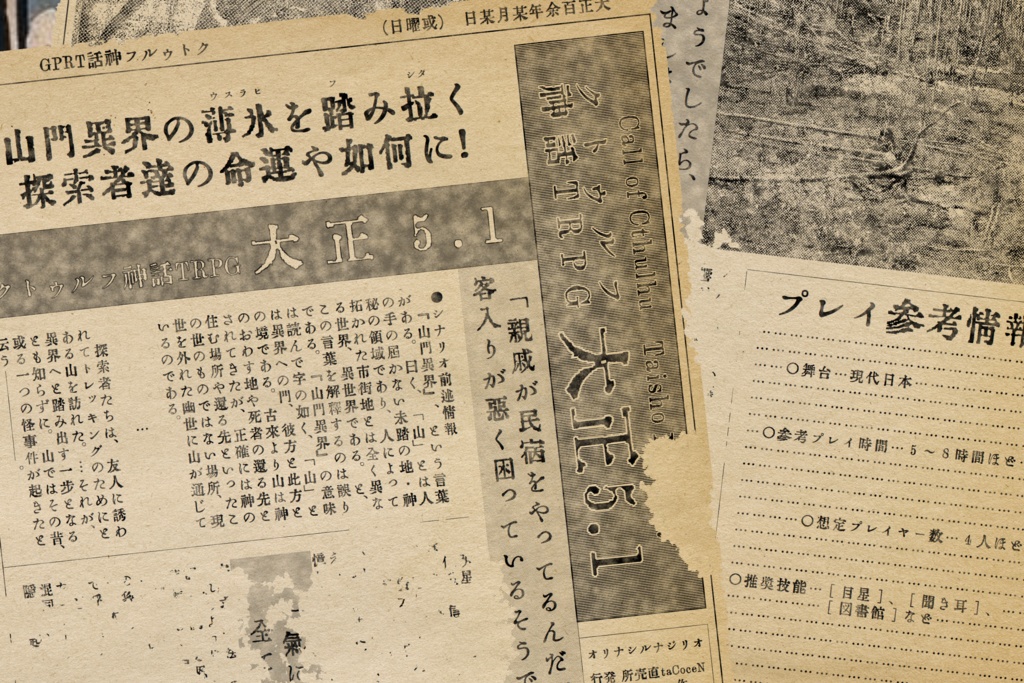 大正百余年某月某日（或曜日）
クトゥルフ神話TRPG
山門異界の薄氷を踏み拉く
ウスラヒ
フ
シタ
探索者達の命運や如何に！
クトゥルフ神話TRPG 大正5.1
Call of Cthulhu Taisho
クトゥルフ
神話TRPG 大正5.1
「親戚が民宿をやってるんだ
客入りが悪く困っているそうで
●シナリオ前述情報
『山門異界』という言葉
がある。曰く、「山」とは人
の手の届かない未踏の地・神
秘の領域であり、人によって
拓かれた市街地とは全く異な
る世界、異世界である、と。
この言葉を解釈するのは誤り
である。『山門異界』の意味
は読んで字の如く、「山」と
は異界への門、彼方と此方と
の境である。古来より山は神
のおわす地や死者の還る先と
されてきたが、正確には神の
住む場所や還る先といったこ
の世のものではない場所、現
世を外れた幽世に山が通じて
いるのである。
…
探索者たちは、友人に誘わ
れてトレッキングのためにと
ある山を訪れた。…それが、
異界へと踏み出す一歩となる
とも知らずに。山ではその昔、
或る一つの怪事件が起きたと
云う――。
オリジナルシナリオ
NecoCat直売所 発行
ようでしたら、
プレイ参考情報
○舞台…現代日本
○参考プレイ時間…5～8時間ほど
○想定プレイヤー数…4人ほど
○推奨技能…［目星］、［聞き耳］、
［図書館］など